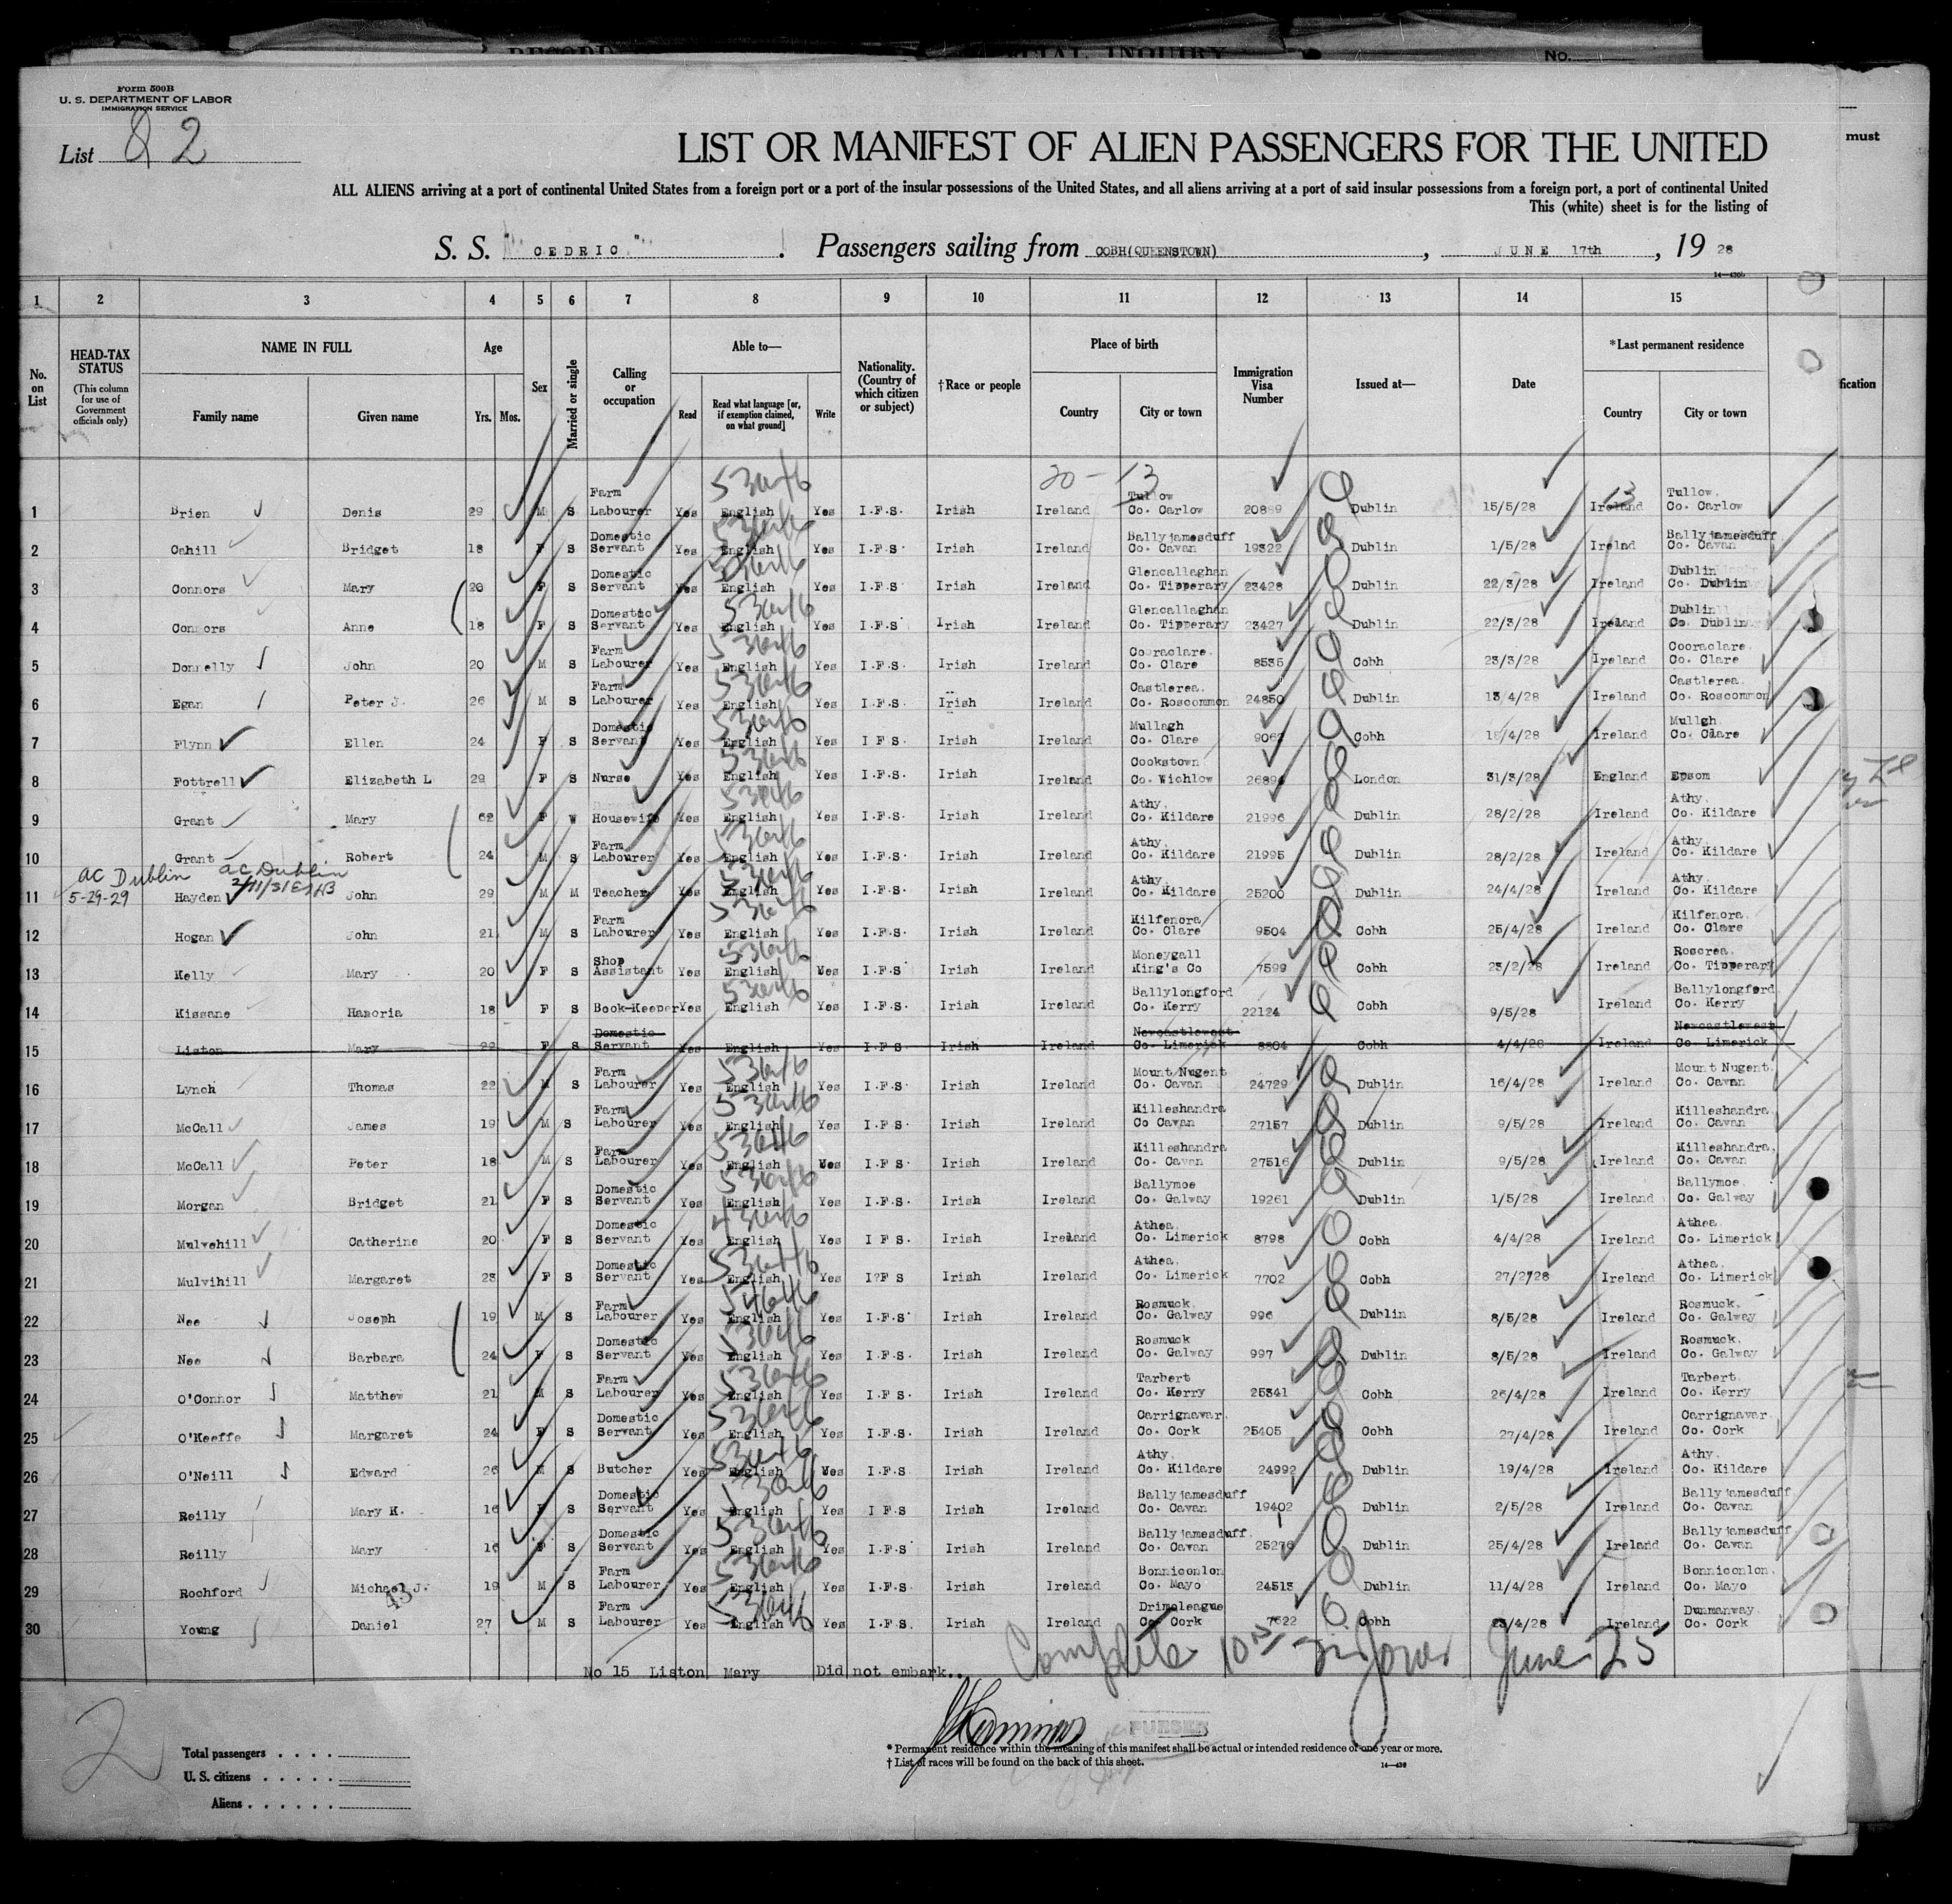 RECORD
SPECIAL INQUIRY
No.
Form 500B
U. S. DEPARTMENT OF LABOR
IMMIGRATION SERVICE
List 2
LIST OR MANIFEST OF ALIEN PASSENGERS FOR THE UNITED
must
ALL ALIENS arriving at a port of continental United States from a foreign port or a port of the insular possessions of the United States, and all aliens arriving at a port of said insular possessions from a foreign port, a port of continental United
This (white) sheet is for the listing of
S. S. "CEDRIC" Passengers sailing from COBH(QUEENSTOWN), JUNE 17th, 1928
1 2 3 4 5 6 7 8 9 10 11 12 13 14 15
No. on List
HEAD-TAX STATUS (This column for use of Government officials only)
NAME IN FULL
Family name
Given name
Age
Yrs. Mos.
Sex
Married or single
Calling or occupation
Able to—
Read
Read what language [or, if exemption claimed, on what ground]
Write
Nationality. (Country of which citizen or subject)
†Race or people
Place of birth
Country
City or town
Immigration Visa Number
Issued at—
Date
*Last permanent residence
Country
City or town
fication
20 - 13
13
1 Brien Denis 29 M S Farm Labourer Yes English Yes I.F.S. Irish Ireland Tullow Co. Carlow 20889 Dublin 15/5/28 Ireland Tullow. Co. Carlow
2 Cahill Bridget 18 F S Domestic Servant Yes English Yes I.F.S. Irish Ireland Ballyjamesduff Co. Cavan 19322 Dublin 1/5/28 Irelnd Ballyjamesduff Co. Cavan
3 Connors Mary 20 F S Domestic Servant Yes English Yes I.F.S. Irish Ireland Glencallaghan Co. Tipperary 23428 Dublin 22/3/28 Ireland Dublin Co. Dublin
4 Connors Anne 18 F S Domestic Servant Yes English Yes I.F.S. Irish Ireland Glencallaghan Co. Tipperary 23427 Dublin 22/3/28 Ireland Dublin Co. Dublin
5 Donnelly John 20 M S Farm Labourer Yes English Yes I.F.S. Irish Ireland Cooraclare. Co. Clare 8535 Cobh 23/3/28 Ireland Cooraclare. Co. Clare
6 Egan Peter J. 26 M S Farm Labourer Yes English Yes I.F.S. Irish Ireland Castlerea. Co. Roscommon 24850 Dublin 13 4/28 Ireland Castlerea. Co. Roscommon
7 Flynn Ellen 24 F S Domestic Servant Yes English Yes I F S. Irish Ireland Mullagh Co. Clare Cobh Ireland Mullgh. Co. Clare
8 Fottrell Elizabeth L 29 F S Nurse Yes English Yes I.F.S. Irish Ireland Cookstown Co. Wichlow 26894 London 31/3/28 England Epsom
9 Grant Mary 62 F W Housewife Yes English Yes I.F.S. Irish Ireland Athy. Co. Kildare 21996 Dublin 28/2/28 Ireland Athy. Co. Kildare
10 Grant Robert 24 M S Farm Labourer Yes English Yes I.F.S. Irish Ireland Athy. Co. Kildare 21995 Dublin 28/2/28 Ireland Athy. Co. Kildare
AC Dublin AC Dublin
5-29-29
11 Hayden John 29 M M Teacher Yes English Yes I.F.S. Irish Ireland Athy. Co. Kildare 25200 Dublin 24/4/28 Ireland Athy. Co. Kildare
12 Hogan John 21 M S Farm Labourer Yes English Yes I.F.S. Irish Ireland Kilfenora Co. Clare 9504 Cobh 25/4/28 Ireland Kilfenora. Co. Clare
13 Kelly Mary 20 F S Shop Assistant Yes English Yes I.F.S Irish Ireland Moneygall King's Co 7599 Cobh 23/2/28 Ireland Roscrea. Co. Tipperary
14 Kissane Hanoria 18 F S Book-Keeper Yes English Yes I.F.S. Irish Ireland Ballylongford Co. Kerry 22124 Cobh 9/5/28 Ireland Ballylongford Co. Kerry
15 Liston Mary 22 F S Domestic Servant Yes English Yes I.F.S Irish Ireland Newcastlewest Co. Limerick 8804 Cobh 4/4/28 Ireland Newcastlewest Co. Limerick
16 Lynch Thomas 22 M S Farm Labourer Yes English Yes I.F.S. Irish Ireland Mount Nugent Co. Cavan 24729 Dublin 16/4/28 Ireland Mount Nugent. Co. Cavan
17 McCall James 19 M S Farm Labourer Yes English Yes I.F.S. Irish Ireland Killeshandra Co Cavan 27157 Dublin 9/5/28 Ireland Killeshandra. Co. Cavan
18 McCall Peter 18 M S Farm Labourer Yes English Yes I.F S. Irish Ireland Killeshandra Co. Cavan 27516 Dublin 9/5/28 Ireland Killeshandra. Co. Cavan
19 Morgan Bridget 21 F S Domestic Servant Yes English Yes I.F.S. Irish Ireland Ballymoe Co. Galway 19261 Dublin 1/5/28 Ireland Ballymoe. Co. Galway
20 Mulvehill Catherine 20 F S Domestic Servant Yes English Yes I F S. Irish Ireland Athea. Co. Limerick 8798 Cobh 4/4/28 Ireland Athea. Co. Limerick
21 Mulvihill Margaret 23 F S Domestic Servant Yes English Yes I?F S Irish Ireland Athea. Co. Limerick 7702 Cobh 27/2?28 Ireland Athea. Co. Limerick
22 Nee Joseph 19 M S Farm Labourer Yes English Yes I.F.S Irish Ireland Rosmuck. Co. Galway 996 Dublin 8/5/28 Ireland Rosmuck. Co. Galway
23 Nee Barbara 24 F S Domestic Servant Yes English Yes I.F.S. Irish Ireland Rosmuck Co. Galway 997 Dublin 8/5/28 Ireland Rosmuck. Co. Galway
24 O'Connor Matthew 21 M S Farm Labourer Yes English Yes I.F S. Irish Ireland Tarbert Co. Kerry 25341 Cobh 26/4/28 Ireland Tarbert. Co. Kerry
25 O'Keeffe Margaret 24 F S Domestic Servant Yes English Yes I.F.S. Irish Ireland Carrignavar. Co. Cork 25405 Cobh 27/4/28 Ireland Carrignavar. Co. Cork
26 O'Neill Edward 26 M S Butcher Yes English Yes I.F.S Irish Ireland Athy. Co. Kildare 24992 Dublin 19/4/28 Ireland Athy. Co. Kildare
27 Reilly Mary K. 16 F S Domestic Servant Yes English Yes I F.S. Irish Ireland Ballyjamesduff Co. Cavan 19402 Dublin 2/5/28 Ireland Ballyjamesduff Co. Cavan
28 Reilly Mary 16 F S Domestic Servant Yes English Yes I.F.S. Irish Ireland Ballyjamesduff. Co. Cavan 25276 Dublin 25/4/28 Ireland Ballyjamesduff Co. Cavan
29 Rochford Michael J. 19 M S Farm Labourer Yes English Yes I.F.S Irish Ireland Bonniconlon Co. Mayo 24513 Dublin 11/4/28 Ireland Bonniconlon. Co. Mayo
30 Young Daniel 27 M S Farm Labourer Yes English Yes I.F.S. Irish Ireland Drimoleague Co. Cork 7622 Cobh Ireland Dunmanway. Co. Cork
No 15 Liston Mary Did not embark..
Complete June 25
2
PURSER
Total passengers
U. S. citizens
Aliens
* Permanent residence within the meaning of this manifest shall be actual or intended residence of one year or more.
† List of races will be found on the back of this sheet.